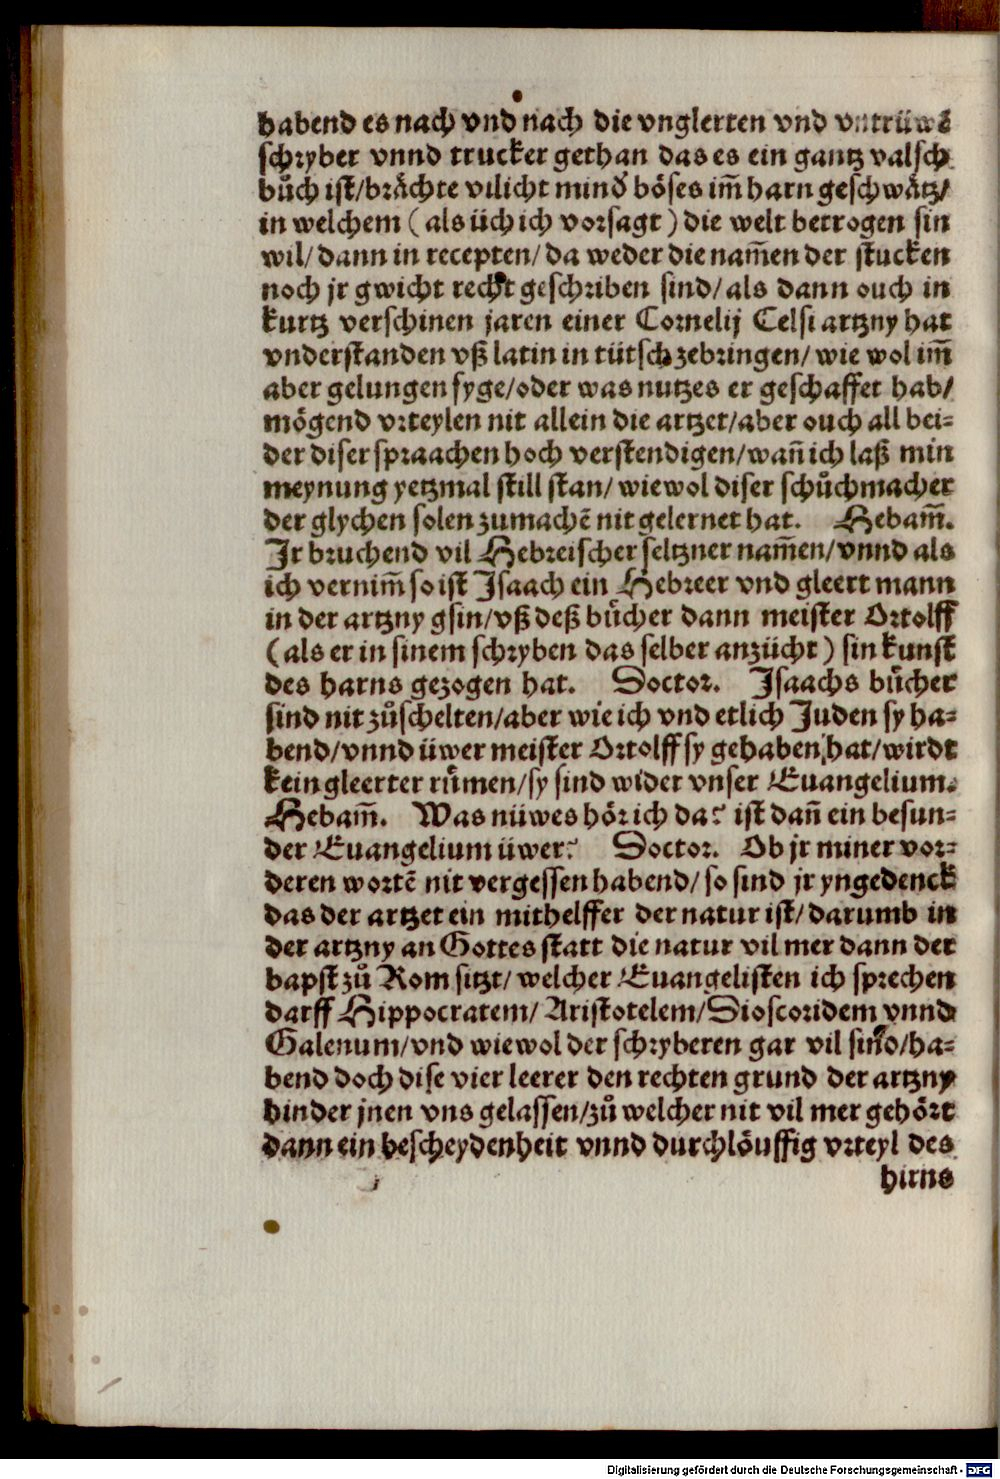 habend es nach vnd nach die vnglerten vnd vntrüwē
schryber vnnd trucker gethan das es ein gantz valsch
bůch ist/brächte vilicht minď böses im̃ harn geschwätz/
in welchem (als üch ich vorsagt) die welt betrogen sin
wil/ dann in recepten/ da weder die nam̃en der stucken
noch jr gwicht recht geschriben sind/ als dann ouch in
kurtz verschinen jaren einer Cornelij Celsi artzny hat
vnderstanden vß latin in tütsch zebringen/ wie wol im̃
aber gelungen syge/oder was nutzes er geschaffet hab/
mögend vrteylen nit allein die artzet/aber ouch all bei⸗
der diser spraachen hoch verstendigen/wañ ich laß min
meynung yetzmal still stan/ wiewol diser schůchmacher
der glychen solen zumachē nit gelernet hat.    Hebam̃.
Jr bruchend vil Hebreischer seltzner nam̃en/vnnd als
ich vernim̃ so ist Jsaach ein Hebreer vnd gleert mann
in der artzny gsin/vß deß bücher dann meister Ortolff
(als er in sinem schryben das selber anzücht) sin kunst
des harns gezogen hat.    Doctor.    Jsaachs bücher
sind nit zůschelten/aber wie ich vnd etlich Juden sy ha⸗
bend/vnnd üwer meister Ortolff sy gehaben hat/wirdt
kein gleerter rümen/sy sind wider vnser Euangelium.
Hebam̃.    Was nüwes hör ich da? ist dañ ein besun⸗
der Euangelium üwer?    Doctor.    Ob jr miner vor⸗
deren wortē nit vergessen habend/ so sind jr yngedenck
das der artzet ein mithelffer der natur ist/ darumb in
der artzny an Gottes statt die natur vil mer dann der
bapst zů Rom sitzt/ welcher Euangelisten ich sprechen
darff Hippocratem/ Aristotelem/Dioscoridem vnnd
Galenum/vnd wiewol der schryberen gar vil sind/ha⸗
bend doch dise vier leerer den rechten grund der artzny
hinder jnen vns gelassen/zů welcher nit vil mer gehört
dann ein bescheydenheit vnnd durchlöuffig vrteyl des
hirns
Digitalisierung gefördert durch die Deutsche Forschungsgemeinschaft - DFG